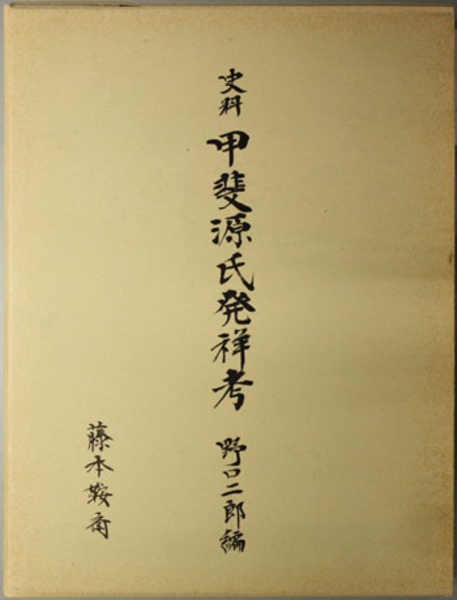 史料 甲斐源氏発祥考 野口二郎編
藤本鞍斎